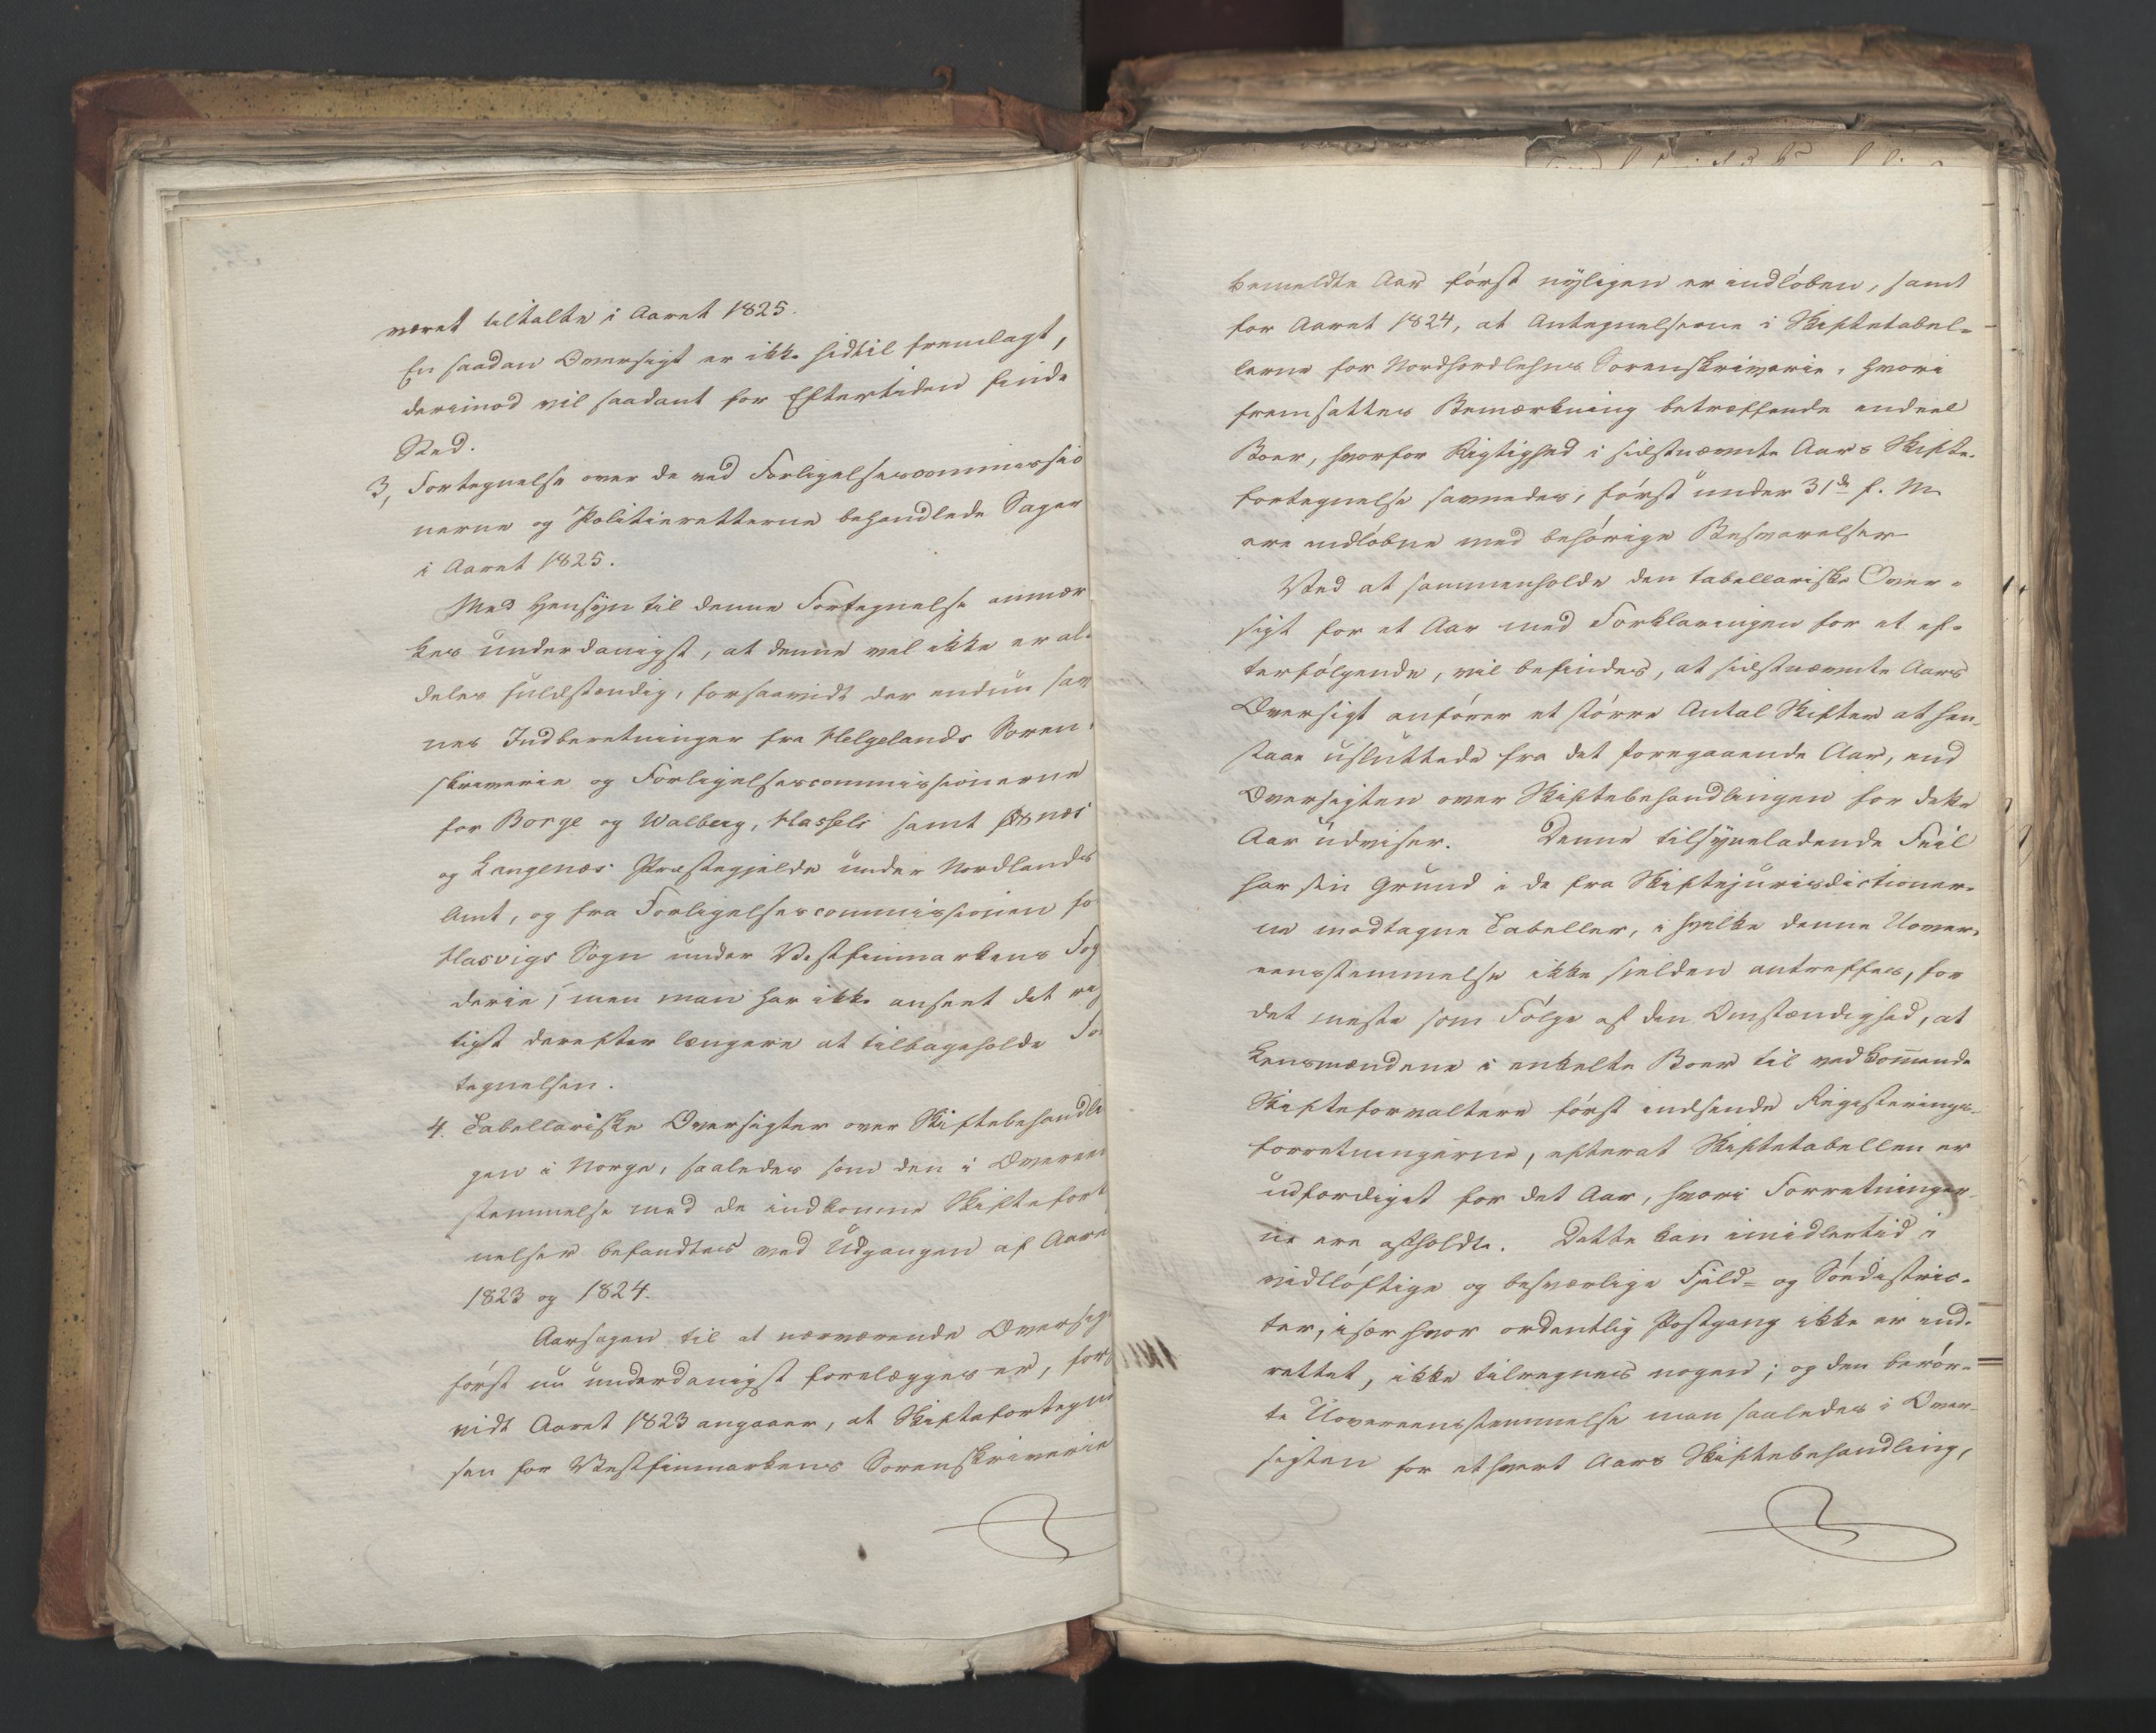 været tiltalte i Aaret 1825.
En saadan Oversigt er ikke hidtil fremlagt,
derimod vil saadant for Eftertiden finde
Sted.
3, Fortegnelse over de ved Forligelsescommissio
nerne og Politieretterne behandlede Sager
i Aaret 1825.
Med Hensyn til denne Fortegnelse anmær
kes underdanigst, at denne vel ikke er al-
deles fuldstændig, forsaavidt der endnu sav
nes Indberetninger fra Helgelands Soren-
skriverie og Forligelsescommissionerne
for Borge og Walberg, Hassels samt
og Langenæs Præstegjelde under Nordlands
Amt, og fra Forligelsescommissionen fo
Hasvigs Sogn under Vestfinmarkens Fog
derie; men man har ikke anseet det rig
tigst derefter længere at tilbageholde Fo
tegnelsen.
4. Tabellariske Oversigter over Skiftebehandli
gen i Norge, saaledes som den i Overeen
stemmelse med de indkomne Skiftefort
nelser befandtes ved Udgangen af Aare
1823 og 1824.
Aarsagen til at nærværende Oversig
først nu underdanigst forelægges er, fors
vidt Aaret 1823 angaaer, at Skiftefortegn
sen for Vestfinmarkens Sorenskriverie
bemeldte Aar først nyligen er indløben, samt
for Aaret 1824, at Antegnelserne i Skiftetabel-
lerne for Nordhordlehns Sorenskriverie, hvori
fremsattes Bemærkning betræffende endeel
Boer, hvorfor Rigtighed i sidstnævnte Aars Skifte-
fortegnelse savnedes, først under 31de f. M.
ere indløbne med behørige Besvarelser
Ved at sammenholde den tabellariske Over-
sigt for et Aar med Forklaringen for et ef-
terfølgende, vil befindes, at sidstnævnte Aars
Oversigt anfører et større Antal Skifter at hen-
staae usluttede fra det foregaaende Aar, end
Oversigten over Skiftebehandlingen for dette
Aar udviser. Denne tilsyneladende Feil
har sin Grund i de fra Skiftejurisdictioner-
ne modtagne Tabeller, i hvilke denne Uover-
eensstemmelse ikke sielden antreffes, for
det meste som Følge af den Omstændighed, at
Lensmændene i enkelte Boer til vedkommende
Skifteforvaltere først indsende Registerings-
forretningerne, efterat Skiftetabellen er
udfærdiget for det Aar, hvori Forretninger-
ne ere afholdte. Dette kan imidlertid i
vidtløftige og besværlige Fjeld- og Søedistric-
ter, især hvor ordentlig Postgang ikke er ind-
rettet, ikke tilregnes nogen; og den berør-
te Uovereensstemmelse man saaledes i Over-
sigten for ethvert Aars Skiftebehandling,